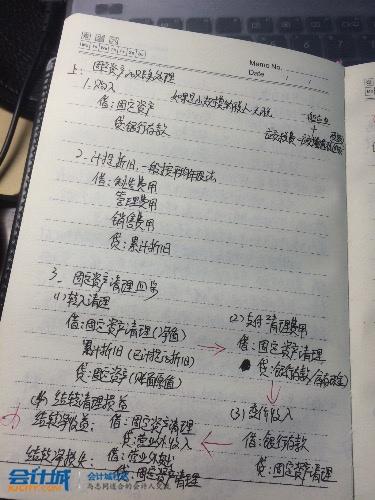 Memo No.
Date / /
上: 固定资产的账务处理
1. 购入
借: 固定资产
贷: 银行存款
如果是小规模纳税人
2. 计提折旧, 一般按年限平均法
借: 制造费用
管理费用
销售费用
贷: 累计折旧
3. 固定资产清理四步
(1) 转入清理
借: 固定资产清理 (净值)
累计折旧 (已计提的折旧)
贷: 固定资产 (账面原值)
(2) 支付清理费用
借: 固定资产清理
贷: 银行存款
(3) 变价收入
借: 银行存款
贷: 固定资产清理
(4) 结转清理损益
结转净收益: 借: 固定资产清理
贷: 营业外收入
结转净损失: 借: 营业外支出
贷: 固定资产清理
会计城
KJCITY.COM
与志同道合的会计人交流